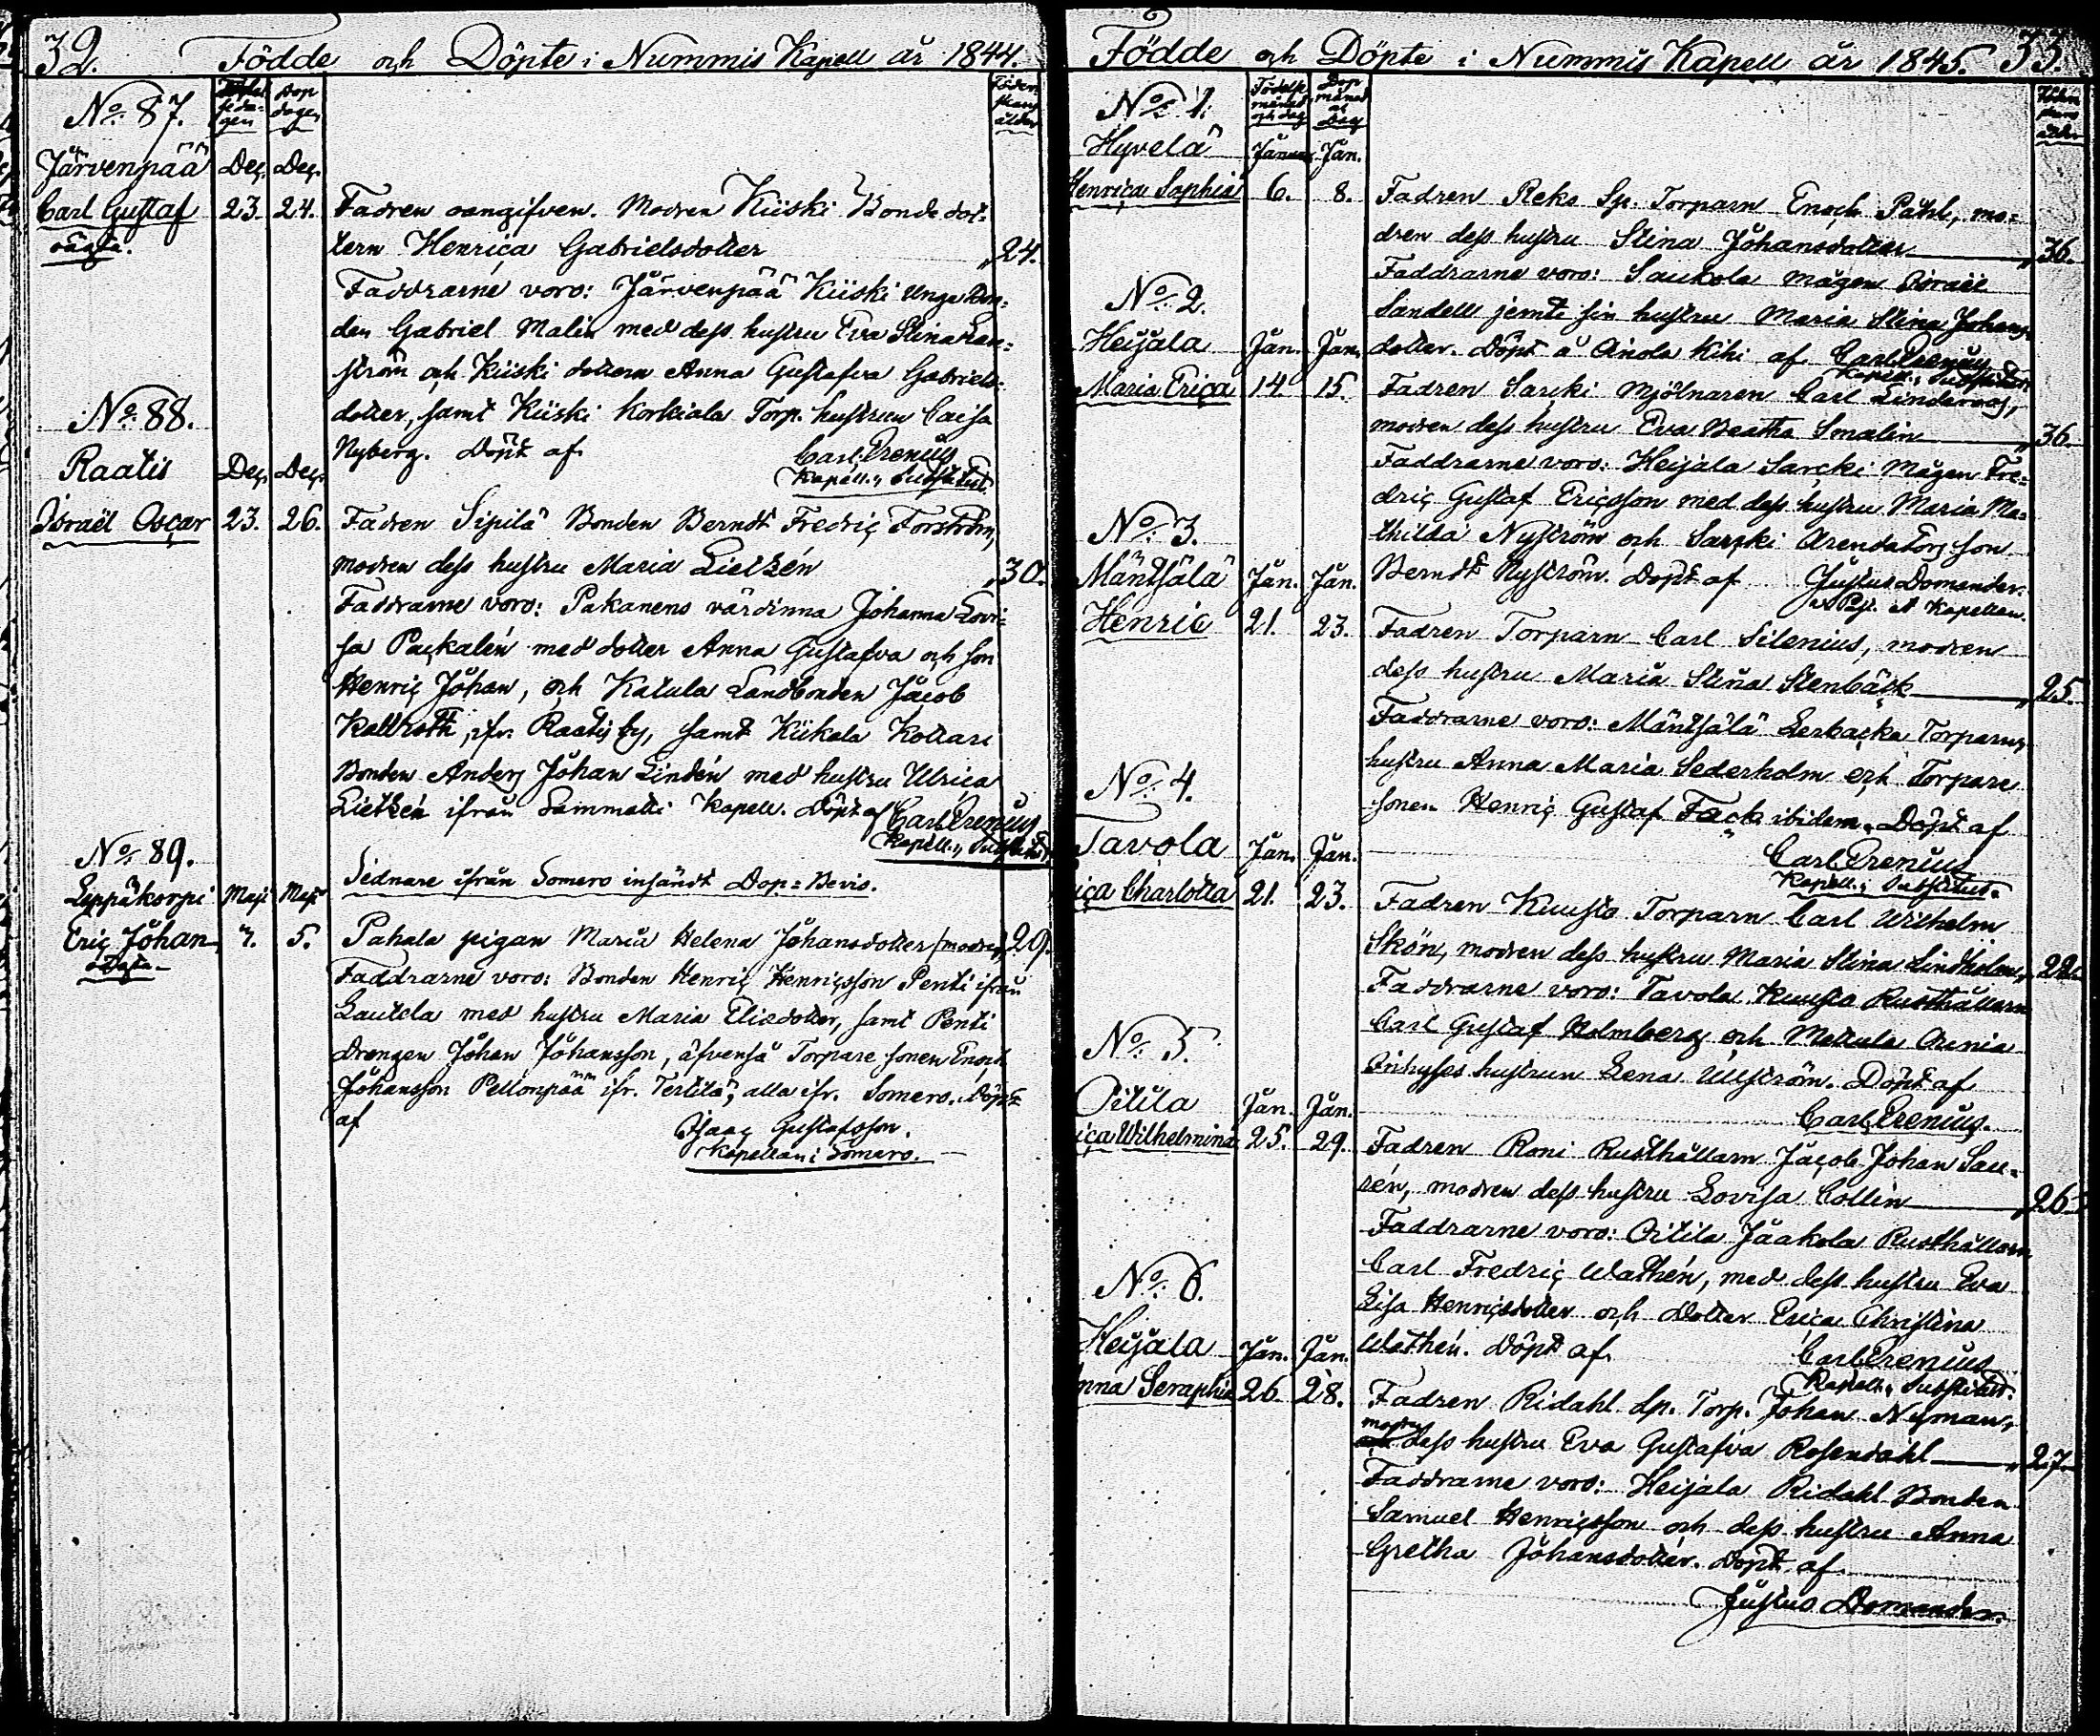 32. Födde och Döpte i Nummis Kapell år 1844.
No. 87.
Dop
dagen
Järvenpää Dec. Dec.
Carl Gustaf 23. 24. Fadren oangifven. Modren Kiiski Bonde dot-
oägta. tern Henrica Gabrielsdotter 24.
Faddrarne voro: Järvenpää Kiiski unga Bon-
den Gabriel Malin med dess hustru Eva Stina
ström och Kiiski dottern Anna Gustafva Gabriels-
dotter, samt Kiiski Korkiala Torp. hustrun Caisa
Nyberg. Döpt af Carl Prenius
Kapell. Substitut.
No. 88.
Raatis Dec. Dec.
Israël Oscar 23. 26. Fadren Sipilä Bonden Berndt Fredric Forström,
modren dess hustru Maria Lietzén 30.
Faddrarne voro: Pakanens värdinna Johanna Lovi-
sa Packalén med dotter Anna Gustafva och son
Henric Johan, och Katula Landbonden Jacob
Kallroth, ifr. Raatis by, samt Kiikala Kottari
Bonden Anders Johan Lindén med hustru Ulrica
Lietzén ifrån Sammatti Kapell. Döpt af Carl Prenius
Kapell. Substitut
No. 89.
Sednare ifrån Somero insändt Dop-Bevis.
Leppäkorpi Maji Maji
Eric Johan 5. Pahala pigan Maria Helena Johansdotter (modren) 29.
Faddrarne voro: Bonden Henric Henricsson Penti ifrån
Lautela med hustru Maria Eliedotter, samt Penti
drengen Johan Johansson, äfvenså Torpare sonen Enoch
Johansson Pellonpää ifr. Terttilä, alla ifr. Somero. Döpt
af Isaac Gustafsson.
Kapellan i Somero.
Födde och Döpte i Nummis Kapell år 1845. 33.
No. 1.
Födelse
månad
och dag
Dop
månad
Dag
Hyvelä Januar. Jan.
Henrica Sophia 6. 8. Fadren Reks Sp. Torparn Enoch Pahl, mo-
dren dess hustru Stina Johansdotter 36.
Faddrarne voro: Saukola mågen Israël
Sandell jemte sin hustru Maria Stina Johans-
dotter. Döpt å Ainola Kihi af Carl Prenius
Kapell. Substitut.
No. 2.
Heijala Jan. Jan.
Maria Erica 14. 15. Fadren Sarcki Mjölnaren Carl
modren dess hustru Eva Beatha Smalin 36.
Faddrarne voro: Heijala Sarcki Mågen Fre-
dric Gustaf Ericsson med dess hustru Maria Ma-
thilda Nyström och Sarcki Arendators son
Berndt Nyström. Döpt af Justus Domander.
Kapellan.
No. 3.
Mäntsälä Jan. Jan.
Henric 21. 23. Fadren Torparn Carl Silenius, modren
dess hustru Maria Stina Stenbäck 25.
Faddrarne voro: Mäntsälä Lerbacka Torparns
hustru Anna Maria Sederholm och Torpare
sonen Henric Gustaf Fäck ibidem. Döpt af
Carl Prenius
Kapell. Substitut.
No. 4.
Tavola Jan. Jan.
ica Charlotta 21. 23. Fadren Kuusto Torparn Carl Wilhelm
Skön, modren dess hustru Maria Stina Lindholm 22.
Faddrarne voro: Tavola Kuusto Rusthållaren
Carl Gustaf Holmberg och Mettula
Inhyses hustrun Lena Ullström. Döpt af
Carl Prenius.
No. 5.
Oitila Jan. Jan.
ica Wilhelmina 25. 29. Fadren Roni Rusthållarn Jacob Johan Sau-
rén, modren dess hustru Lovisa Collin 26.
Faddrarne voro: Oitila Jaakola Rusthållarn
Carl Fredric Wathén, med dess hustru Eva
Lisa Henricsdotter och dotter Erica Christina
Wathén. Döpt af Carl Prenius
Kapell. Substitut.
No. 6.
Heijala Jan. Jan.
nna Seraphia 26. 28. Fadren Ridahl Sp. Torp. Johan Nyman,
modren dess hustru Eva Gustafva Rosendahl 27.
Faddrarne voro: Heijala Ridahl Bonden
Samuel Henricsson och dess hustru Anna
Gretha Johansdotter. Döpt af
Justus Domander.